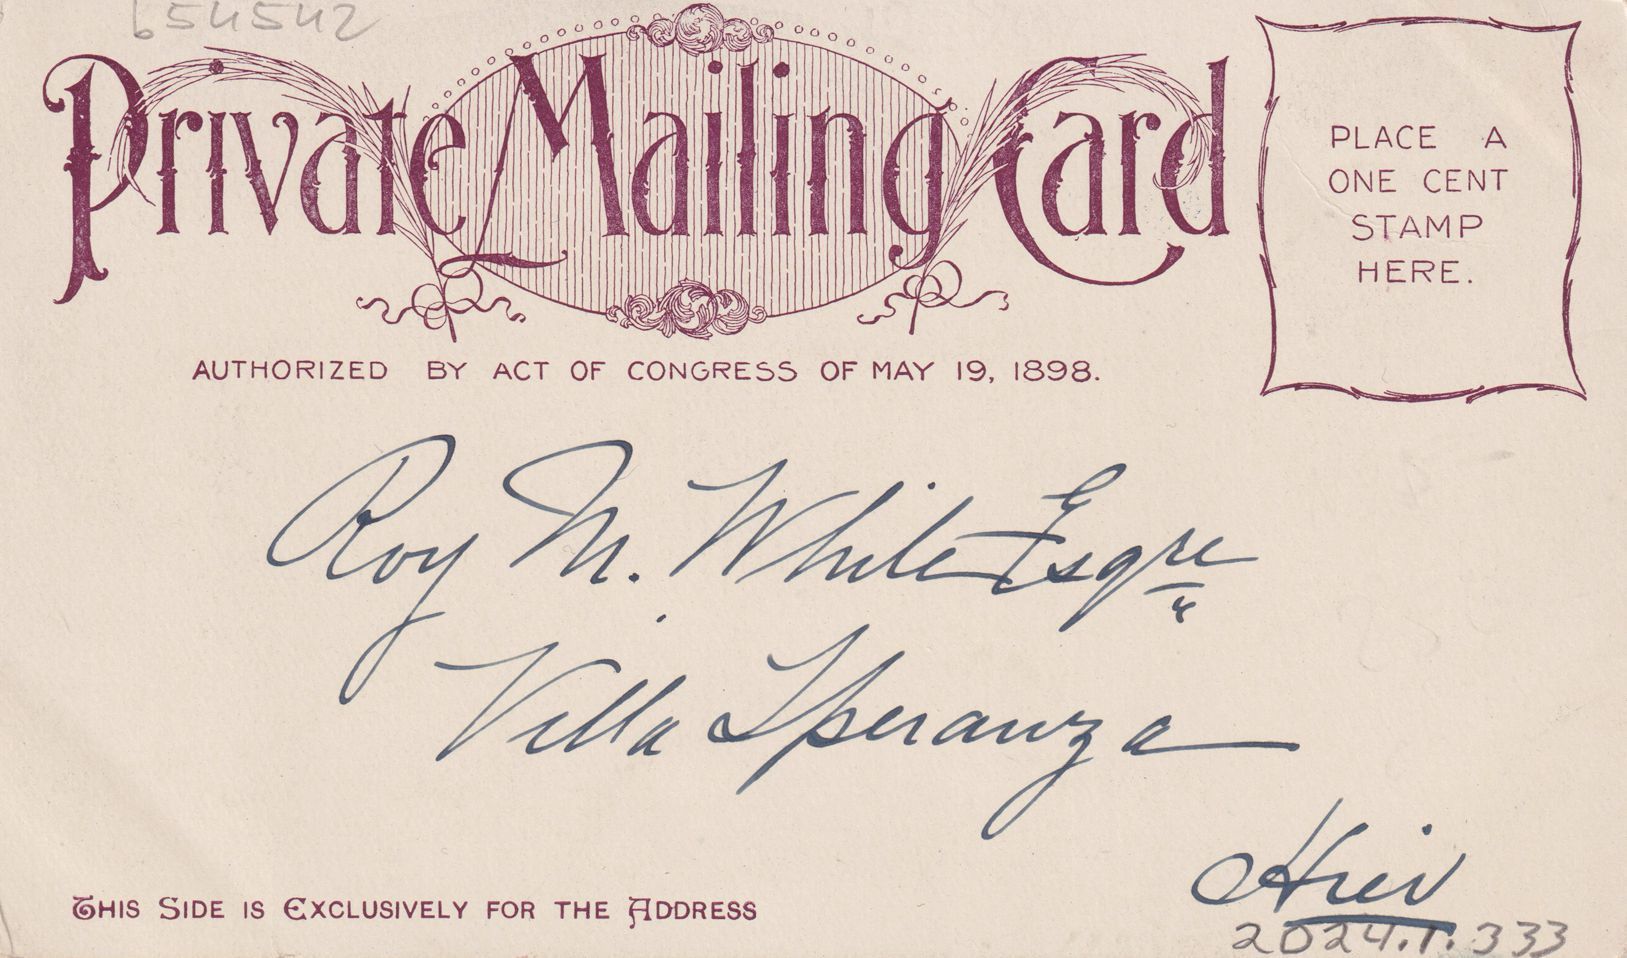 654542
Private Mailing Card
PLACE A
ONE CENT
STAMP
HERE.
AUTHORIZED BY ACT OF CONGRESS OF MAY 19, 1898.
Roy M. White Esqre
Villa Speranza
THIS SIDE IS EXCLUSIVELY FOR THE ADDRESS
2024.1.333